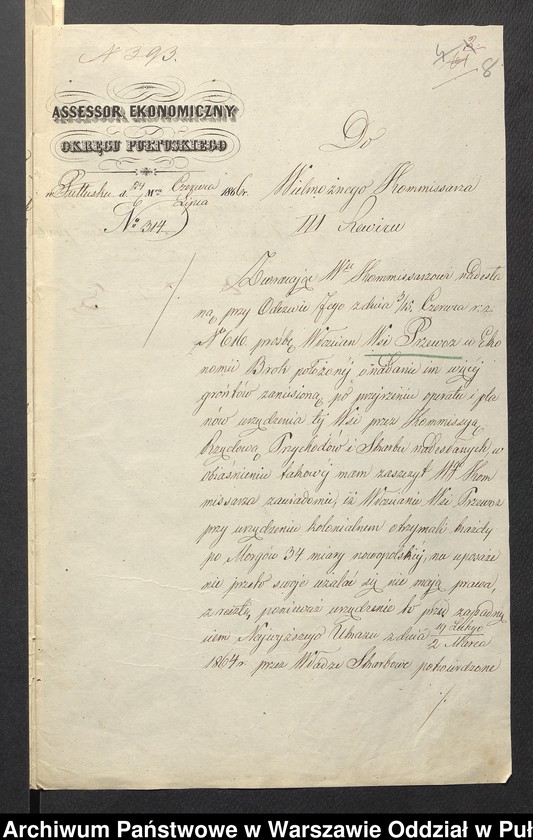 N 393.
8
ASSESSOR EKONOMICZNY
OKRĘGU PUŁTUSKIEGO
w Pułtusku d. 24 Czerwca / 6 Lipca 1866 r.
No 314
Do
Wielmożnego Kommissarza
III Rewiru
Zwracając Wu Kommissarzowi nadesła
ną przy Odezwie Jego z dnia 3/15 Czerwca r. z.
No 610 prośbę Włościan Wsi Przewoz w Eko
nomii Brok położonej o nadanie im więcej
gróntów zaniesioną, po przejrzeniu operatu i pla
nów urządzenia tej Wsi przez Kommissyą
Rządową Przychodów i Skarbu nadesłanych, w
obiaśnieniu takowej mam zaszczyt W Kom
missarza zawiadomić, iż Włościanie Wsi Przewoz
przy urządzeniu kolonialnem otrzymali każdy
po Morgów 34 miary nowopolskiej, na uposaże
nie przeto swoje użalać się nie mają prawa,
z resztą, ponieważ urządzenie to przed zapadnię
ciem Najwyższego Ukazu z dnia 19 Lutego / 2 Marca
1864 r. przez Władze Skarbowe potwierdzone
Archiwum Państwowe w Warszawie Oddział w Puł